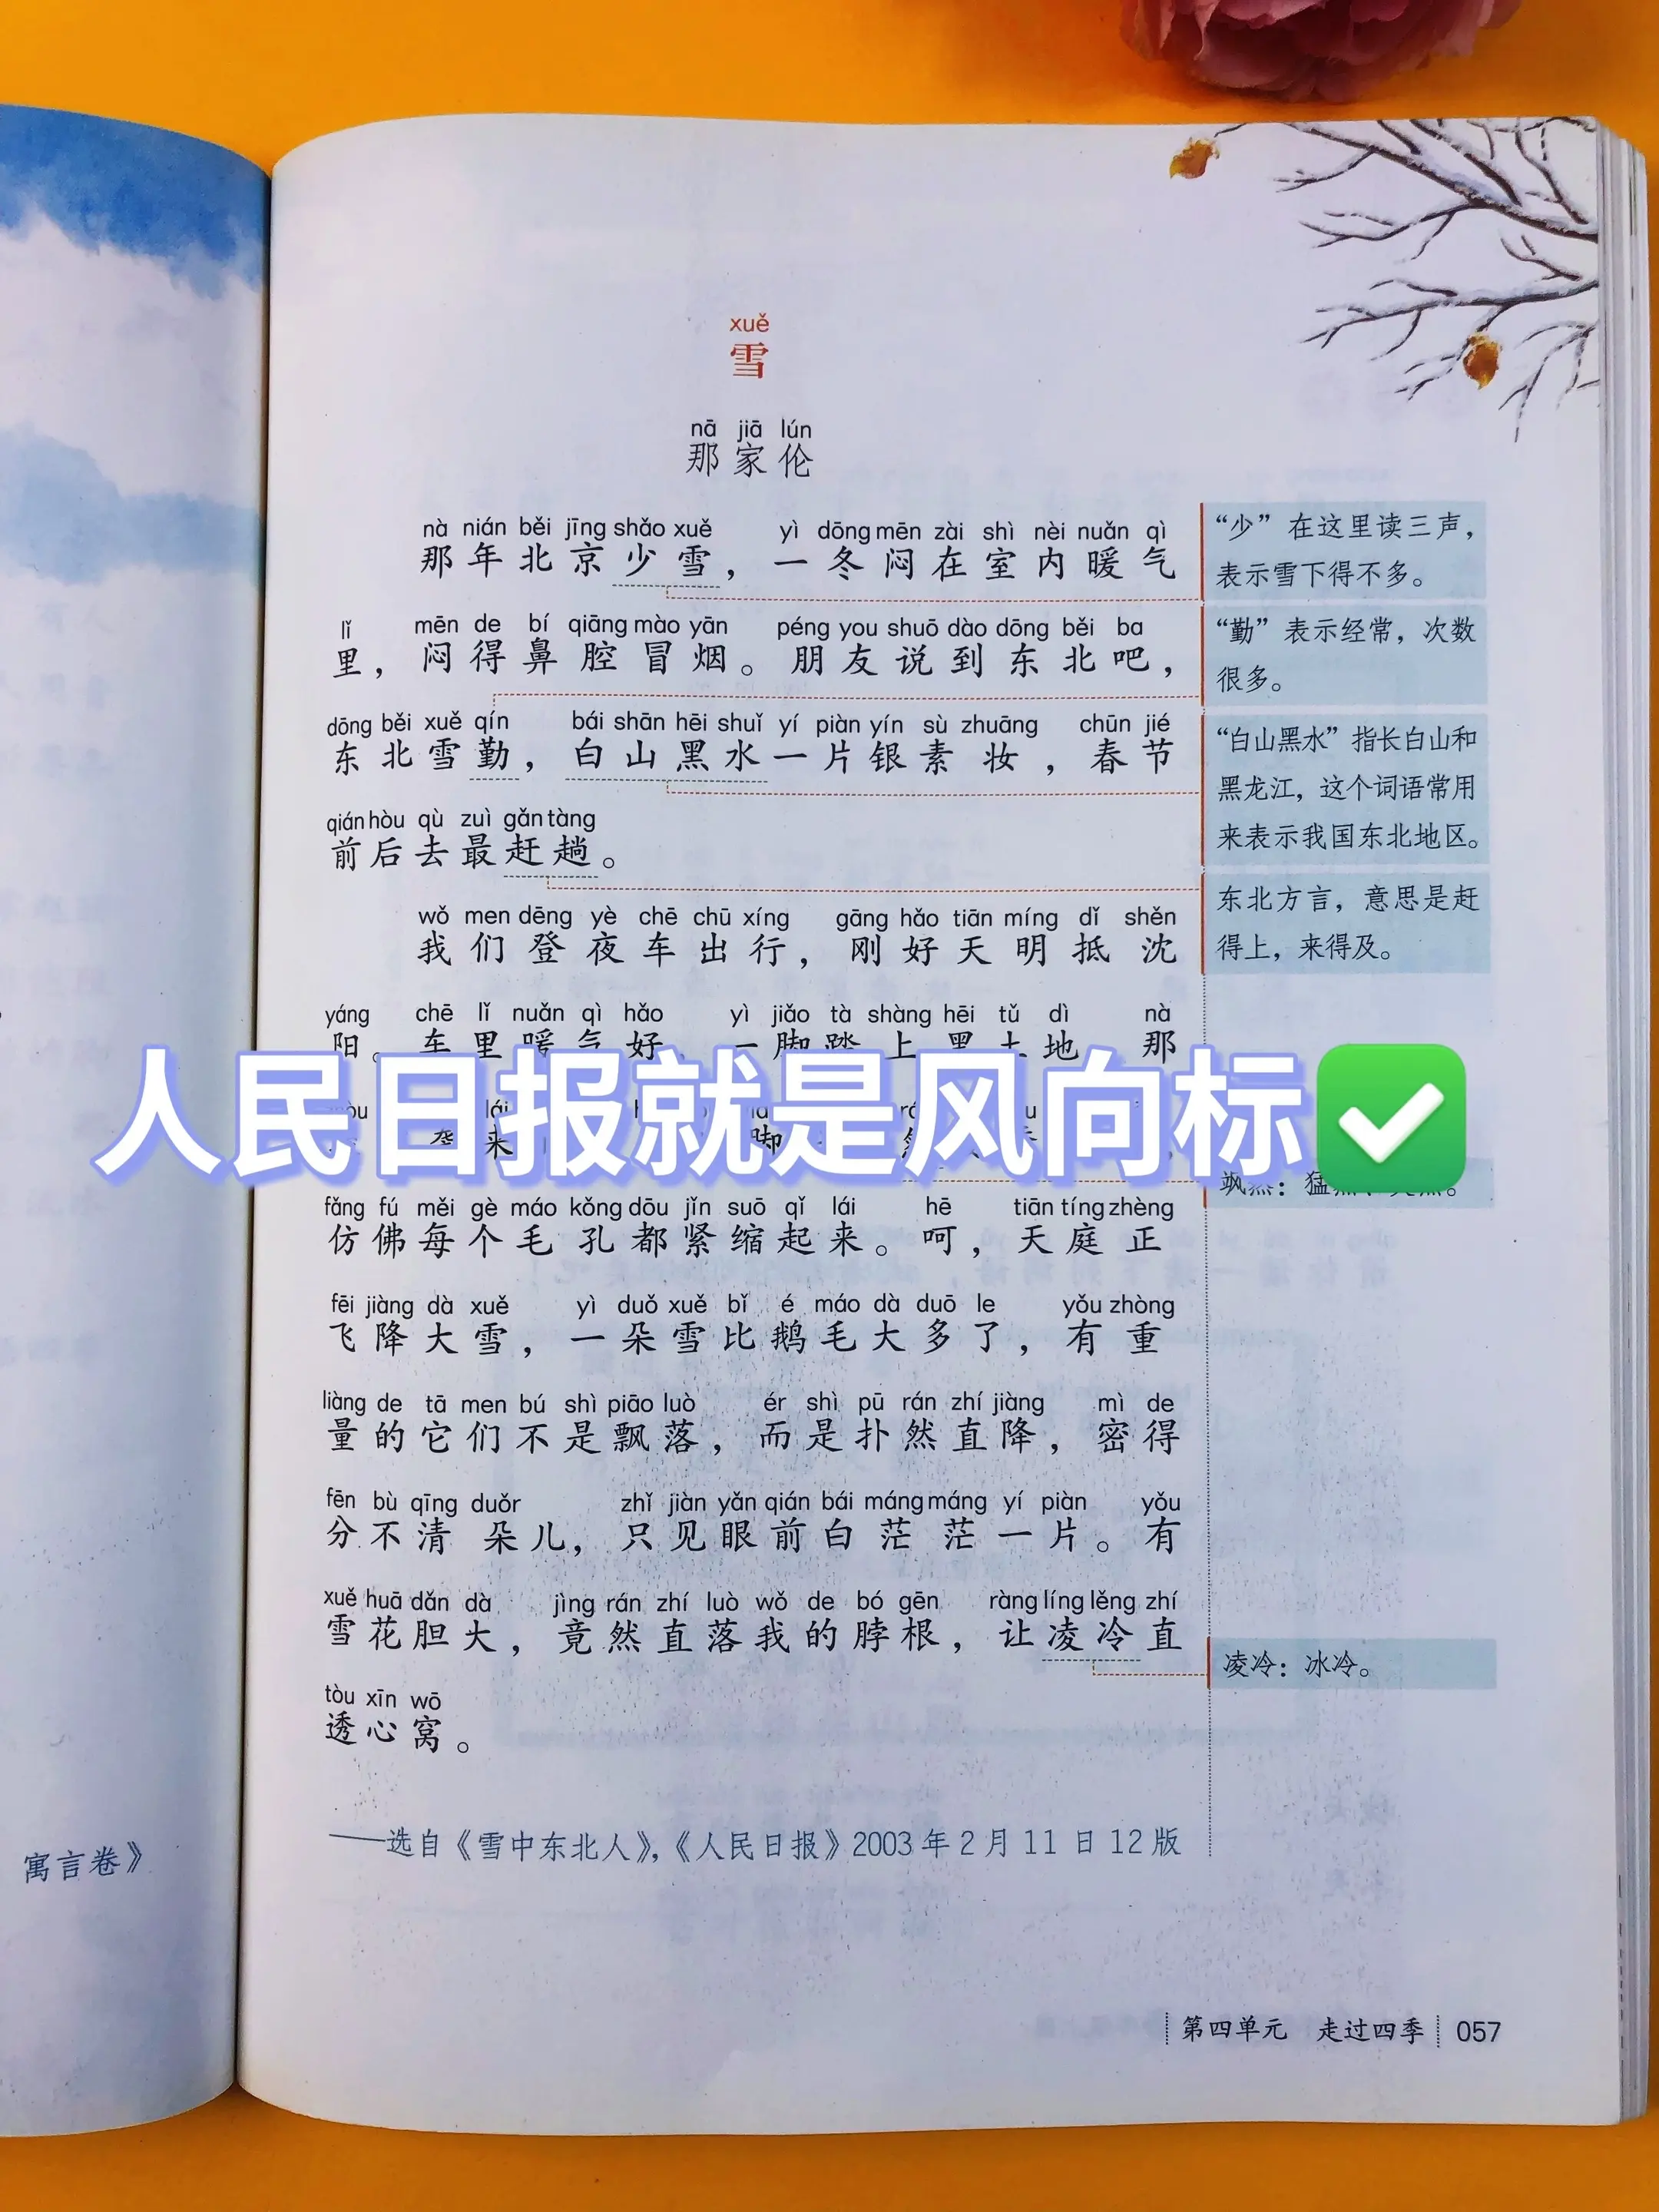 xuě
雪
nā jiā lún
那家伦
nà nián běi jīng shǎo xuě yì dōng mēn zài shì nèi nuǎn qì
那年北京少雪，一冬闷在室内暖气
lǐ mēn de bí qiāng mào yān péng you shuō dào dōng běi ba
里，闷得鼻腔冒烟。朋友说到东北吧，
dōng běi xuě qín bái shān hēi shuǐ yí piàn yín sù zhuāng chūn jié
东北雪勤，白山黑水一片银素妆，春节
qián hòu qù zuì gǎn tàng
前后去最赶趟。
wǒ men dēng yè chē chū xíng gāng hǎo tiān míng dǐ shěn
我们登夜车出行，刚好天明抵沈
yáng chē lǐ nuǎn qì hǎo yì jiǎo tà shàng hēi tǔ dì nà
阳。车里暖气好，一脚踏上黑土地，那
人民日报就是风向标
来
fǎng fú měi gè máo kǒng dōu jǐn suō qǐ lái hē tiān tíng zhèng
仿佛每个毛孔都紧缩起来。呵，天庭正
fēi jiàng dà xuě yì duǒ xuě bǐ é máo dà duō le yǒu zhòng
飞降大雪，一朵雪比鹅毛大多了，有重
liàng de tā men bú shì piāo luò ér shì pū rán zhí jiàng mì de
量的它们不是飘落，而是扑然直降，密得
fēn bù qīng duǒr zhǐ jiàn yǎn qián bái máng máng yí piàn yǒu
分不清朵儿，只见眼前白茫茫一片。有
xuě huā dǎn dà jìng rán zhí luò wǒ de bó gēn ràng líng lěng zhí
雪花胆大，竟然直落我的脖根，让凌冷直
tòu xīn wō
透心窝。
——选自《雪中东北人》，《人民日报》2003年2月11日12版
“少”在这里读三声，
表示雪下得不多。
“勤”表示经常，次数
很多。
“白山黑水”指长白山和
黑龙江，这个词语常用
来表示我国东北地区。
东北方言，意思是赶
得上，来得及。
飒然：猛
凌冷：冰冷。
寓言卷》
第四单元 走过四季 057